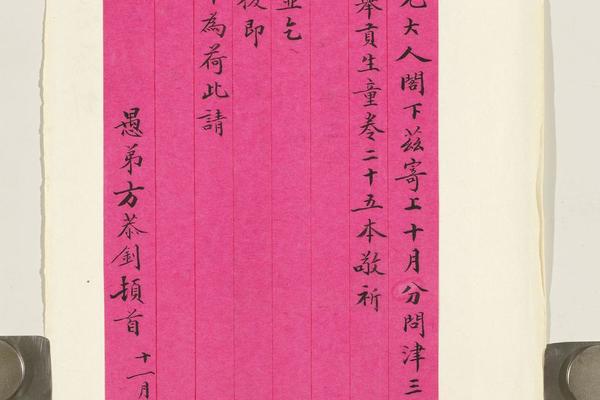 兄大人閣下茲寄上十月分問津三
舉貢生童卷二十五本敬祈
並乞
即
為荷此請
愚弟方恭釗頓首 十一月